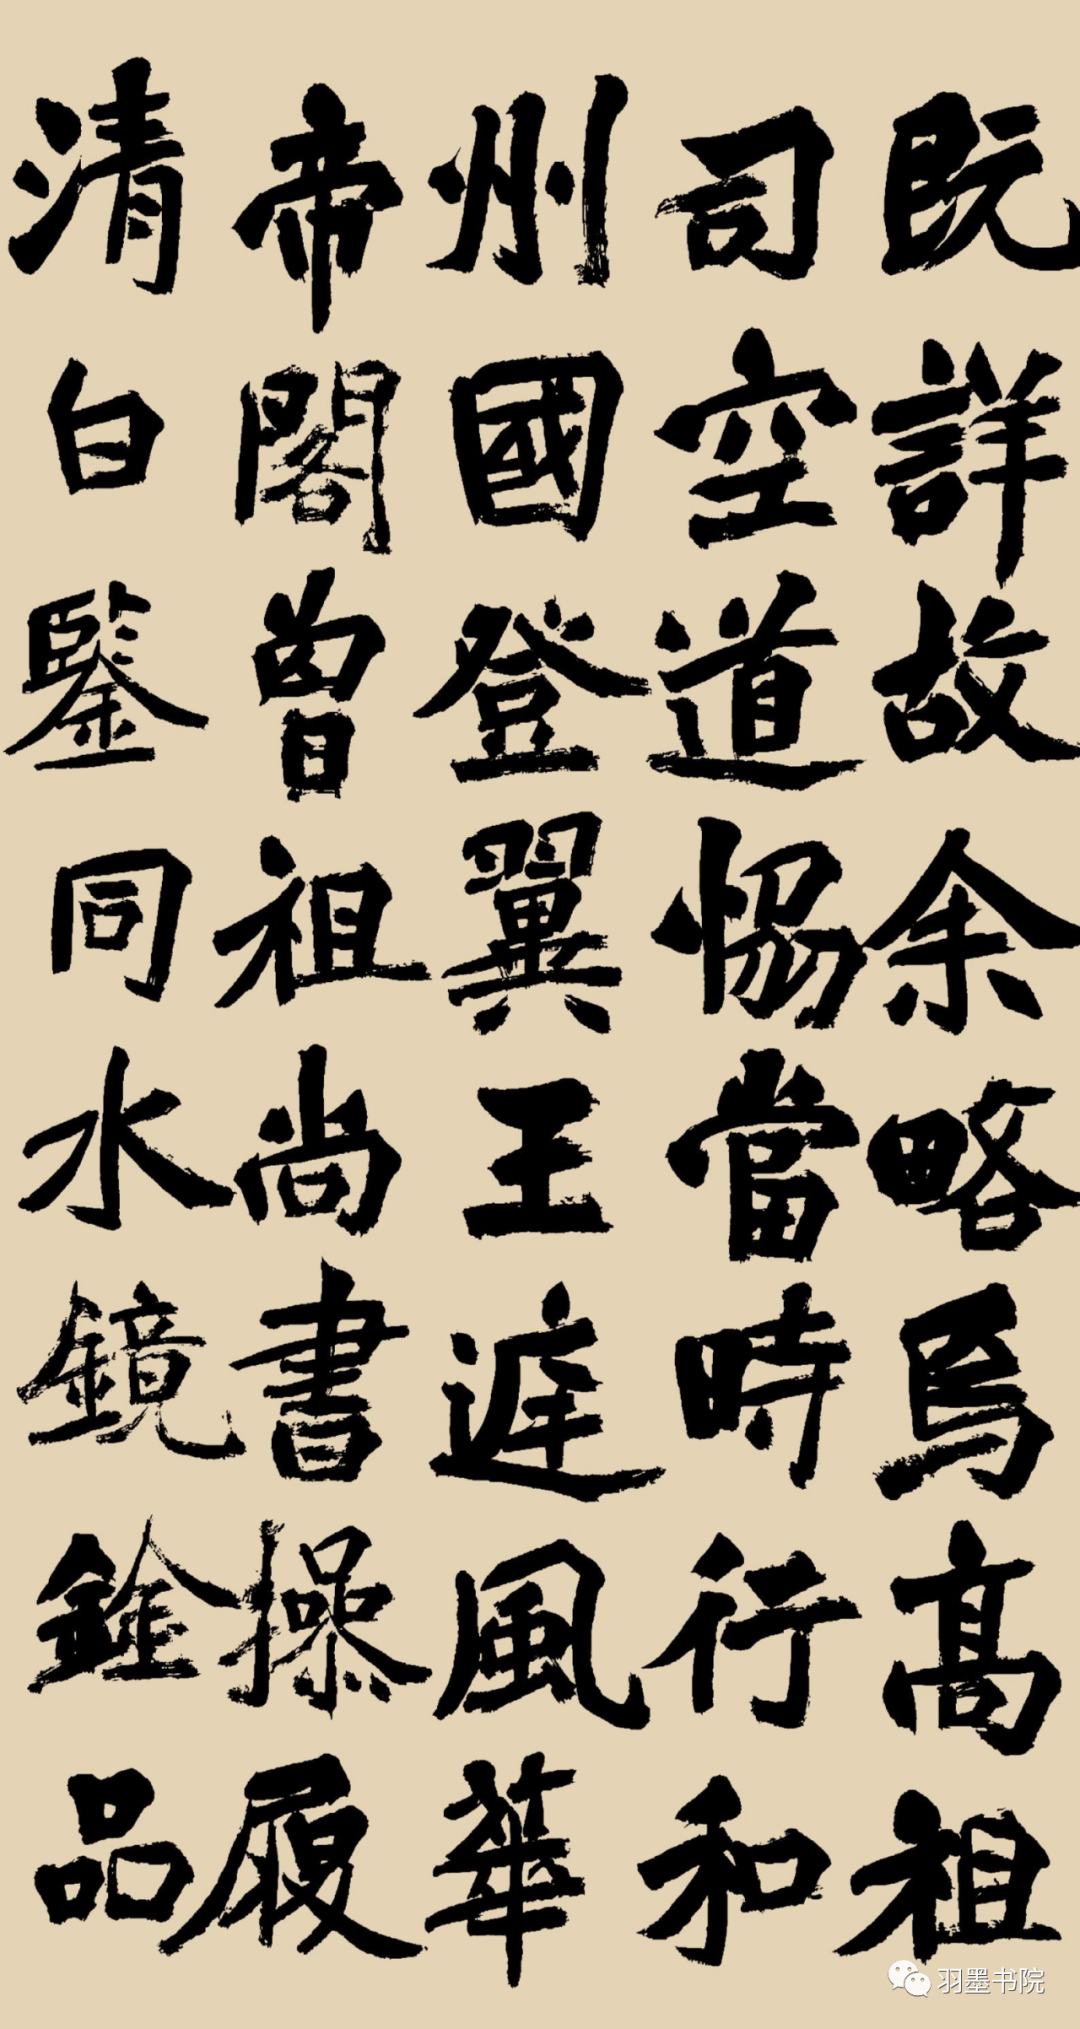 既詳故余略焉高祖
司空道惕當時行和
州國登翼王遟風華
帝閣曽祖尚書操履
清白鑒同水鏡銓品
羽墨书院